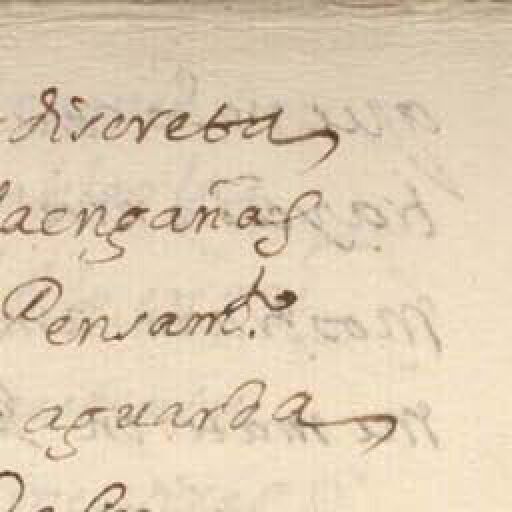 discreta,
la engañas
Pensam.to
aguarda,